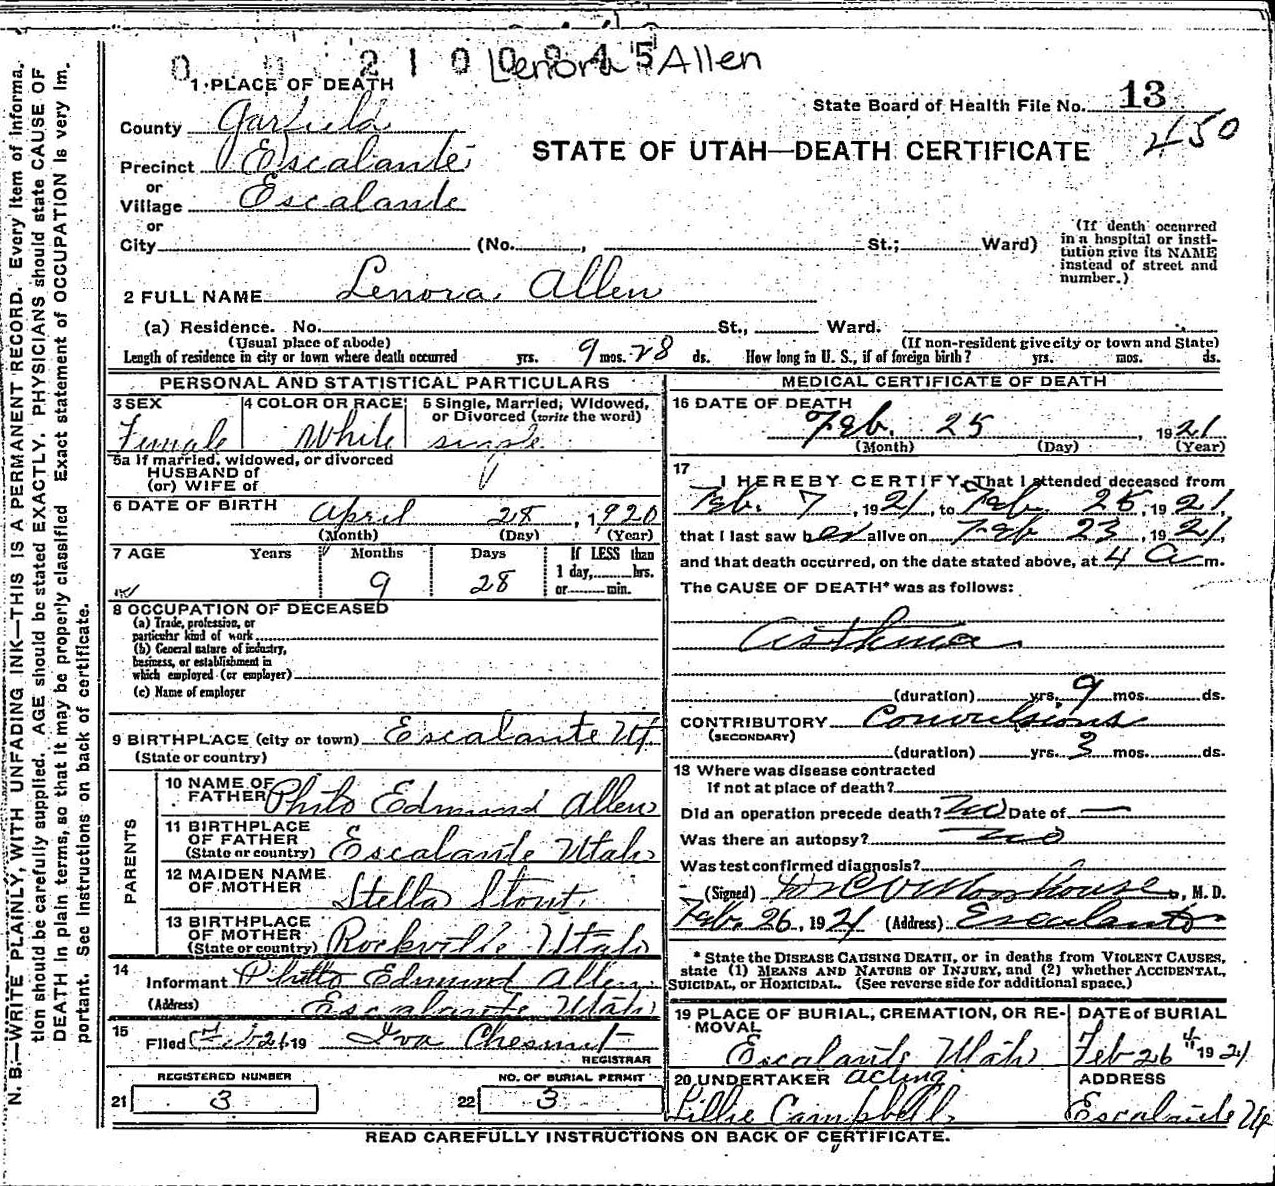 0 0 210 0845
Lenora Allen
1 PLACE OF DEATH
State Board of Health File No. 13
450
County Garfield
STATE OF UTAH—DEATH CERTIFICATE
Precinct Escalante
or
Village Escalante
or
City (No. , St.; Ward)
(If death occurred in a hospital or insti-
tution give its NAME
instead of street and
number.)
2 FULL NAME Lenora Allen
(a) Residence. No. St., Ward.
(Usual place of abode) (If non-resident give city or town and State)
Length of residence in city or town where death occurred yrs. 9 mos. 28 ds. How long in U. S., if of foreign birth? yrs. mos. ds.
PERSONAL AND STATISTICAL PARTICULARS
3 SEX 4 COLOR OR RACE 5 Single, Married, Widowed,
or Divorced (write the word)
Female White single
5a If married, widowed, or divorced
HUSBAND of
(or) WIFE of
6 DATE OF BIRTH April 28, 1920
(Month) (Day) (Year)
7 AGE Years Months Days If LESS than
1 day, hrs.
or min.
9 28
8 OCCUPATION OF DECEASED
(a) Trade, profession, or
particular kind of work
(b) General nature of industry,
business, or establishment in
which employed (or employer)
(c) Name of employer
9 BIRTHPLACE (city or town) Escalante Ut.
(State or country)
PARENTS
10 NAME OF
FATHER Philo Edmund Allen
11 BIRTHPLACE
OF FATHER
(State or country) Escalante Utah
12 MAIDEN NAME
OF MOTHER Stella Stout
13 BIRTHPLACE
OF MOTHER
(State or country) Rockville Utah
14
Informant Philo Edmund Allen
(Address) Escalante Utah
15
Filed Feb 26 19 Iva Chesnut
REGISTRAR
REGISTERED NUMBER NO. OF BURIAL PERMIT
21 3 22 3
MEDICAL CERTIFICATE OF DEATH
16 DATE OF DEATH
Feb. 25, 1921
(Month) (Day) (Year)
17
I HEREBY CERTIFY, That I attended deceased from
Feb. 7, 1921, to Feb. 25, 1921,
that I last saw her alive on Feb 23, 1921,
and that death occurred, on the date stated above, at 4 a m.
The CAUSE OF DEATH* was as follows:
Asthma
(duration) yrs. 9 mos. ds.
CONTRIBUTORY Convulsions
(SECONDARY)
(duration) yrs. 3 mos. ds.
18 Where was disease contracted
If not at place of death?
Did an operation precede death? no Date of —
Was there an autopsy? no
Was test confirmed diagnosis?
(Signed) M. D.
Feb. 26, 1921 (Address) Escalante
* State the DISEASE CAUSING DEATH, or in deaths from VIOLENT CAUSES,
state (1) MEANS AND NATURE OF INJURY, and (2) whether ACCIDENTAL,
SUICIDAL, or HOMICIDAL. (See reverse side for additional space.)
19 PLACE OF BURIAL, CREMATION, OR RE-
MOVAL
Escalante Utah
DATE of BURIAL
Feb 26 1921
20 UNDERTAKER acting
Lillie Campbell
ADDRESS
Escalante Ut
READ CAREFULLY INSTRUCTIONS ON BACK OF CERTIFICATE.
N. B.—WRITE PLAINLY, WITH UNFADING INK—THIS IS A PERMANENT RECORD. Every item of informa-
tion should be carefully supplied. AGE should be stated EXACTLY. PHYSICIANS should state CAUSE OF
DEATH in plain terms, so that it may be properly classified. Exact statement of OCCUPATION is very im-
portant. See instructions on back of certificate.